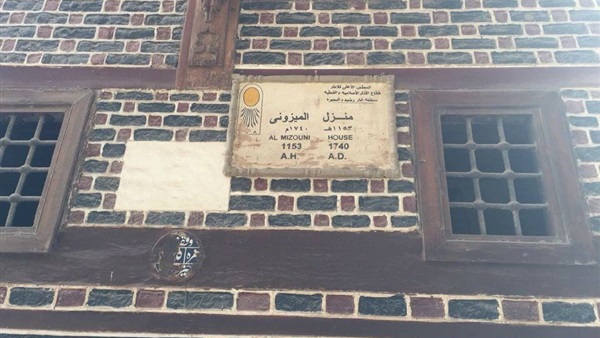 المجلس الأعلى للآثار
قطاع الآثار الاسلامية والقبطية
منطقة اثار رشيد والبحيرة
منزل الميزونى
١١٥٣هـ ١٧٤٠م
AL MIZOUNI HOUSE
1153 1740
A.H. A.D.